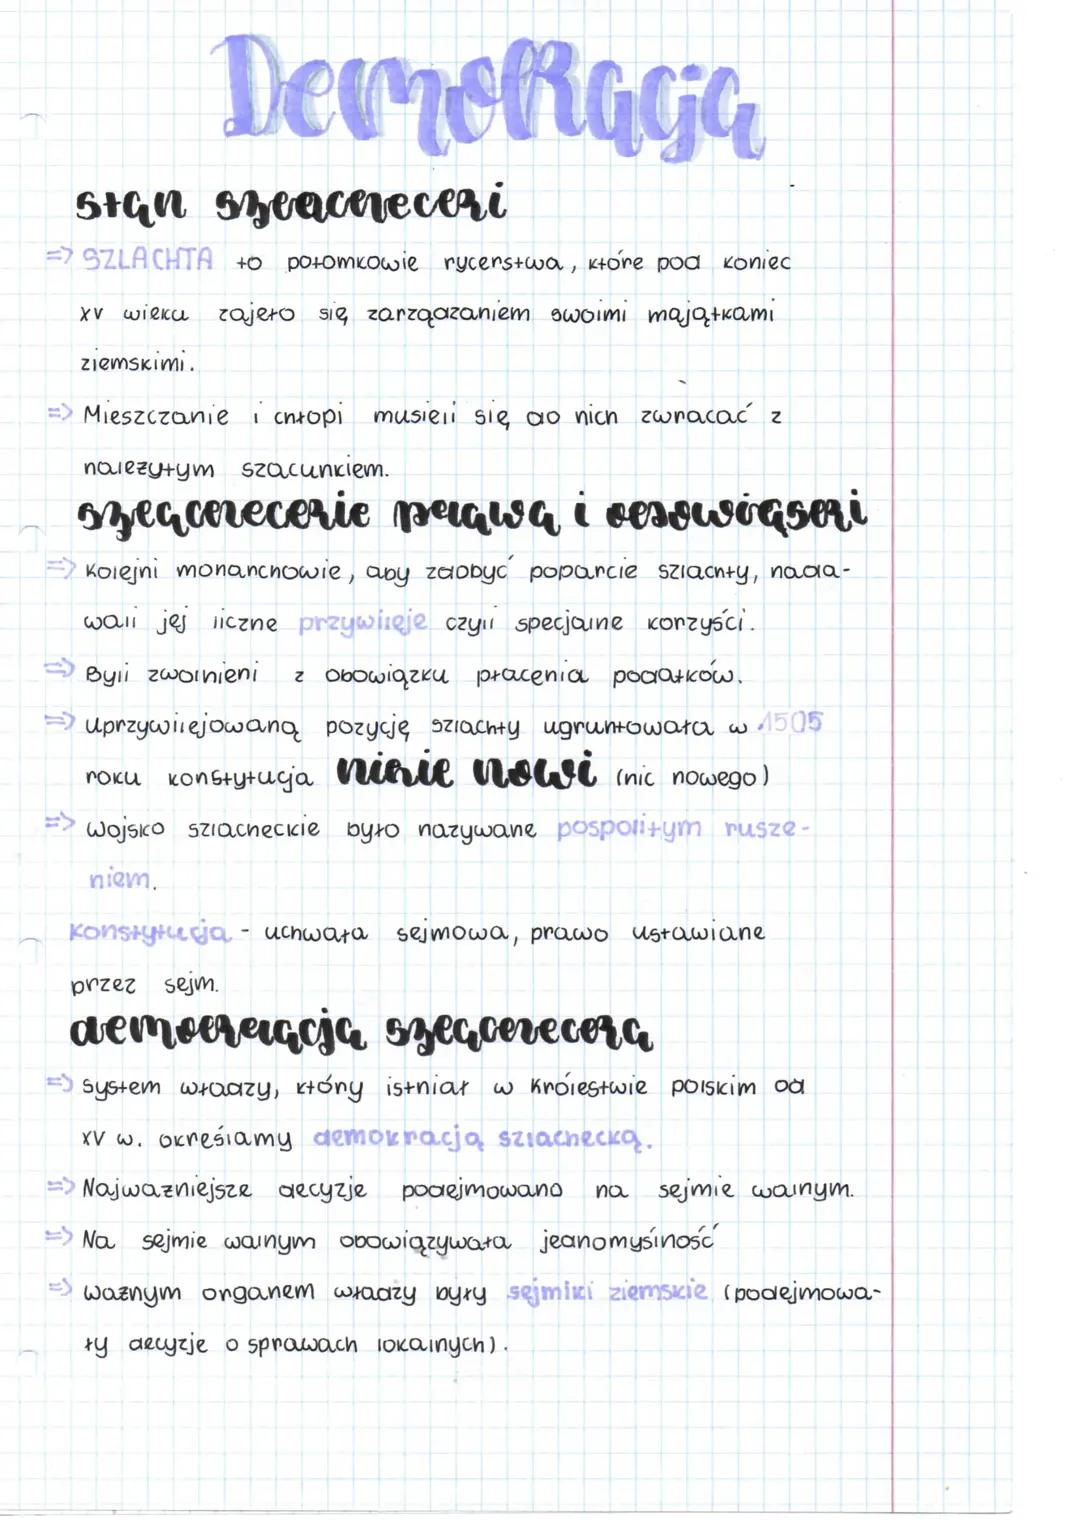 Demokracja
stan szlachecki
=> SZLACHTA to potomkowie rycerstwa, które pod koniec
XV wieku zajęło się zarządzaniem swoimi majątkami
ziemskimi.
=> Mieszczanie i chłopi musieli się do nich zwracać z
należytym szacunkiem.
szlacheckie prawa i obowiązki
=> Kolejni monarchowie, aby zdobyć poparcie szlachty, nada-
wali jej liczne przywileje czyli specjalne korzyści.
=> Byli zwolnieni z obowiązku płacenia podatków.
=> Uprzywilejowaną pozycję szlachty ugruntowała w 1505
roku konstytucja nihil novi (nic nowego)
=> Wojsko szlacheckie było nazywane pospolitym rusze-
niem.
Konstytucja - uchwała sejmowa, prawo ustawiane
przez sejm.
demokracja szlachecka
=> System władzy, który istniał w Królestwie polskim od
XV w. określamy demokracją szlachecką.
=> Najważniejsze decyzje podejmowano na sejmie walnym.
=> Na sejmie walnym obowiązywała jednomyślność
=> Ważnym organem władzy były sejmiki ziemskie (podejmowa-
ły decyzje o sprawach lokalnych).